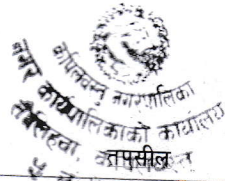 कपिलवस्तु नगरपालिका
नगर कार्यपालिकाको कार्यालय
तौलिहवा,
तपसील